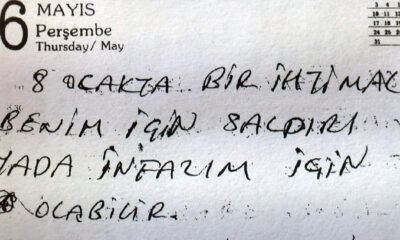 6
MAYIS
Perşembe
Thursday/ May
8 OCAKTA BİR İHTİMAL
BENİM İÇİN SALDIRI
YADA İNFAZIM İÇİN
OLABİLİR.